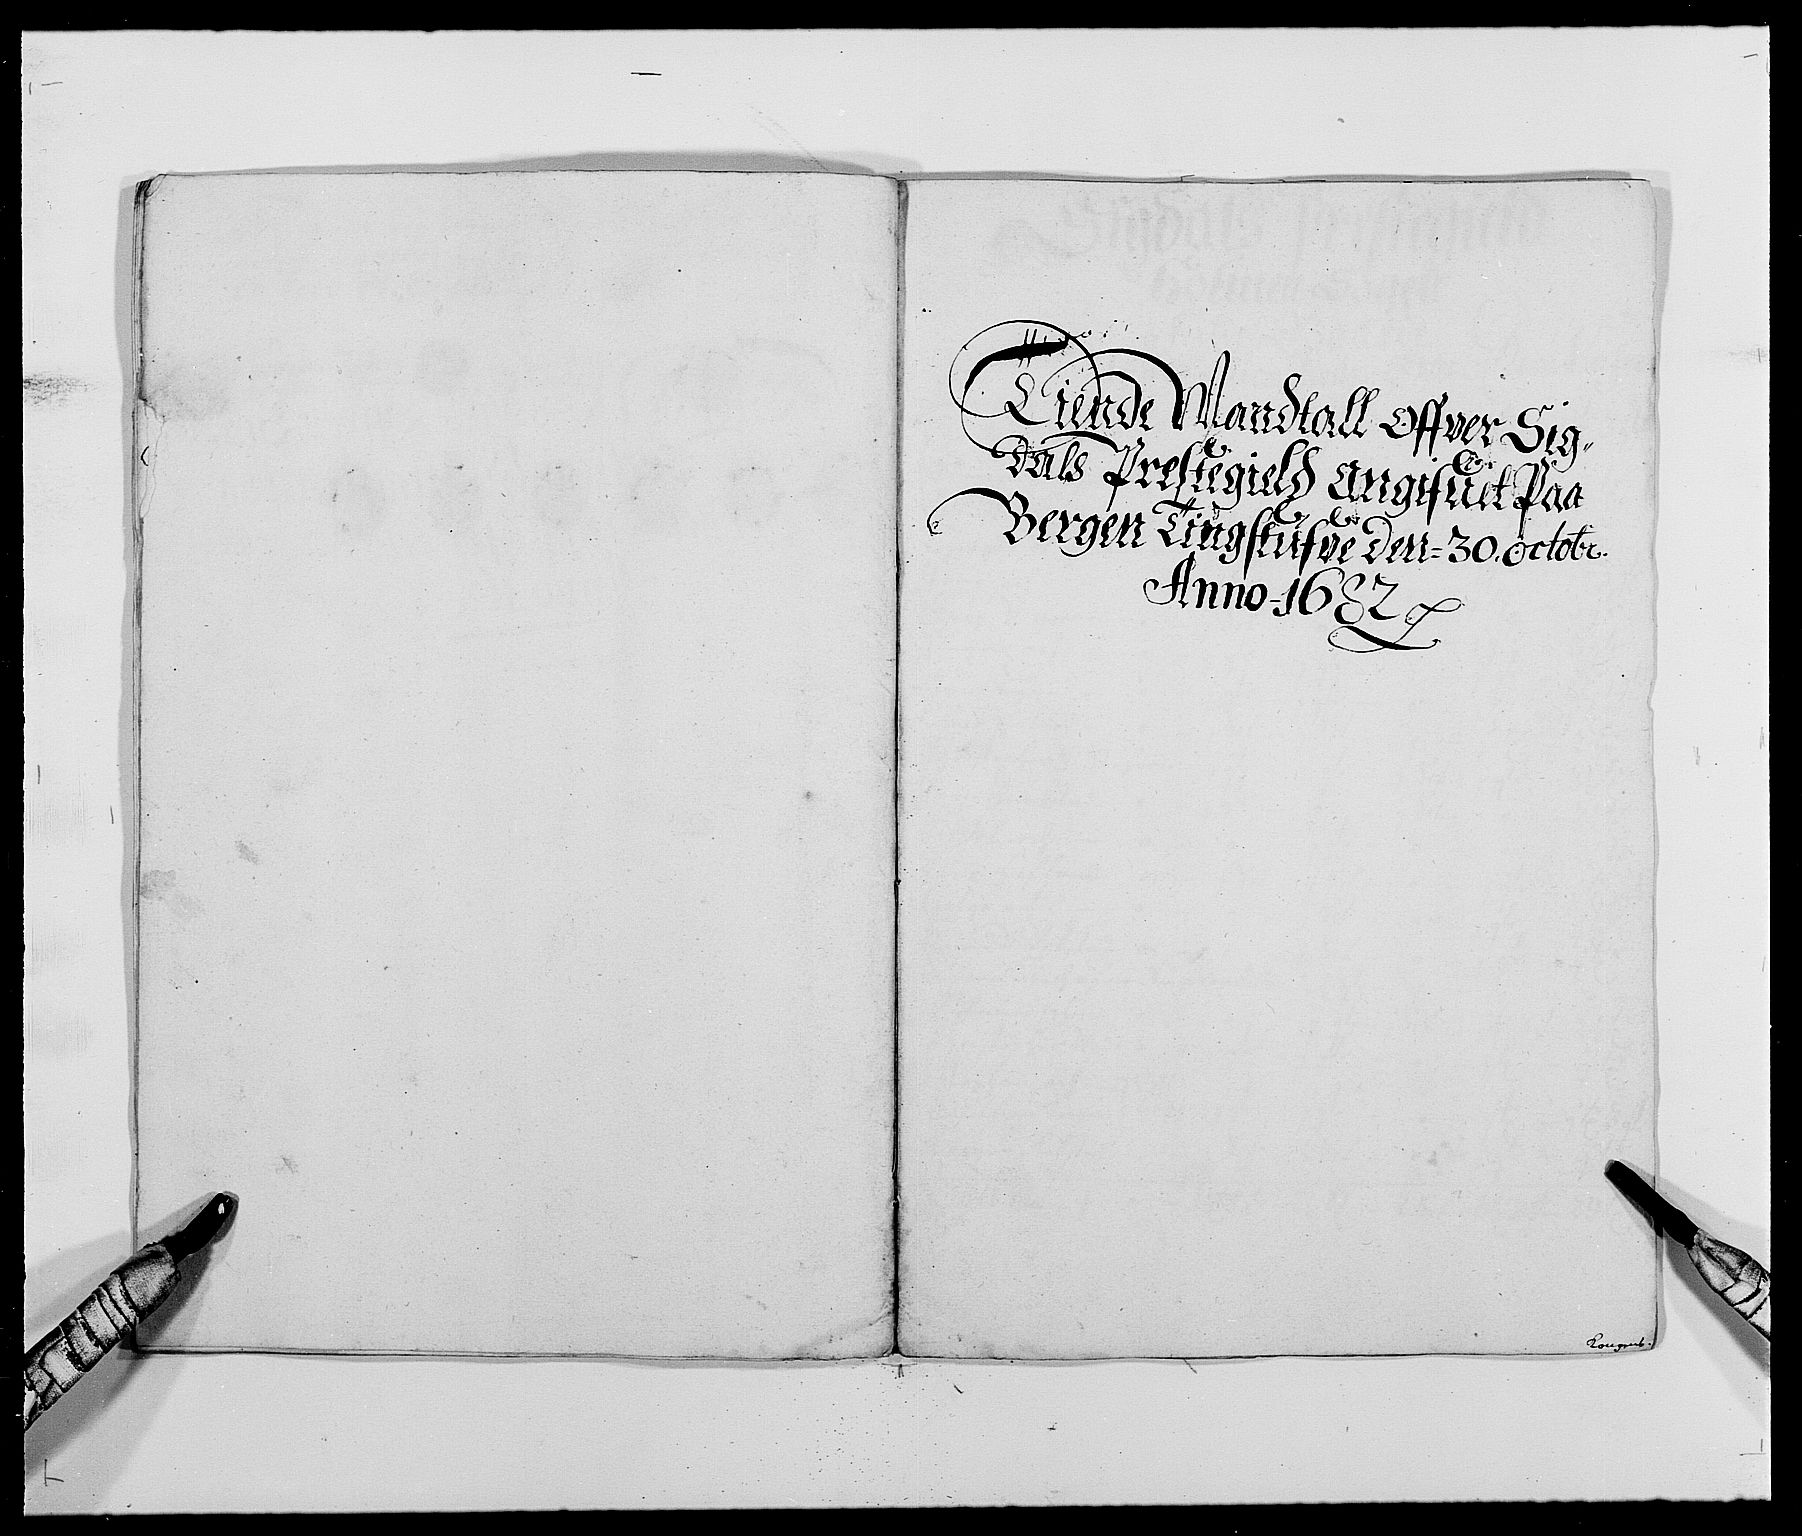 Tiende Mandtall Offver Sig-
dals Prestegield Angifuet Paa
Bergen Tingstufve den= 30. Octobr.
Anno= 1682